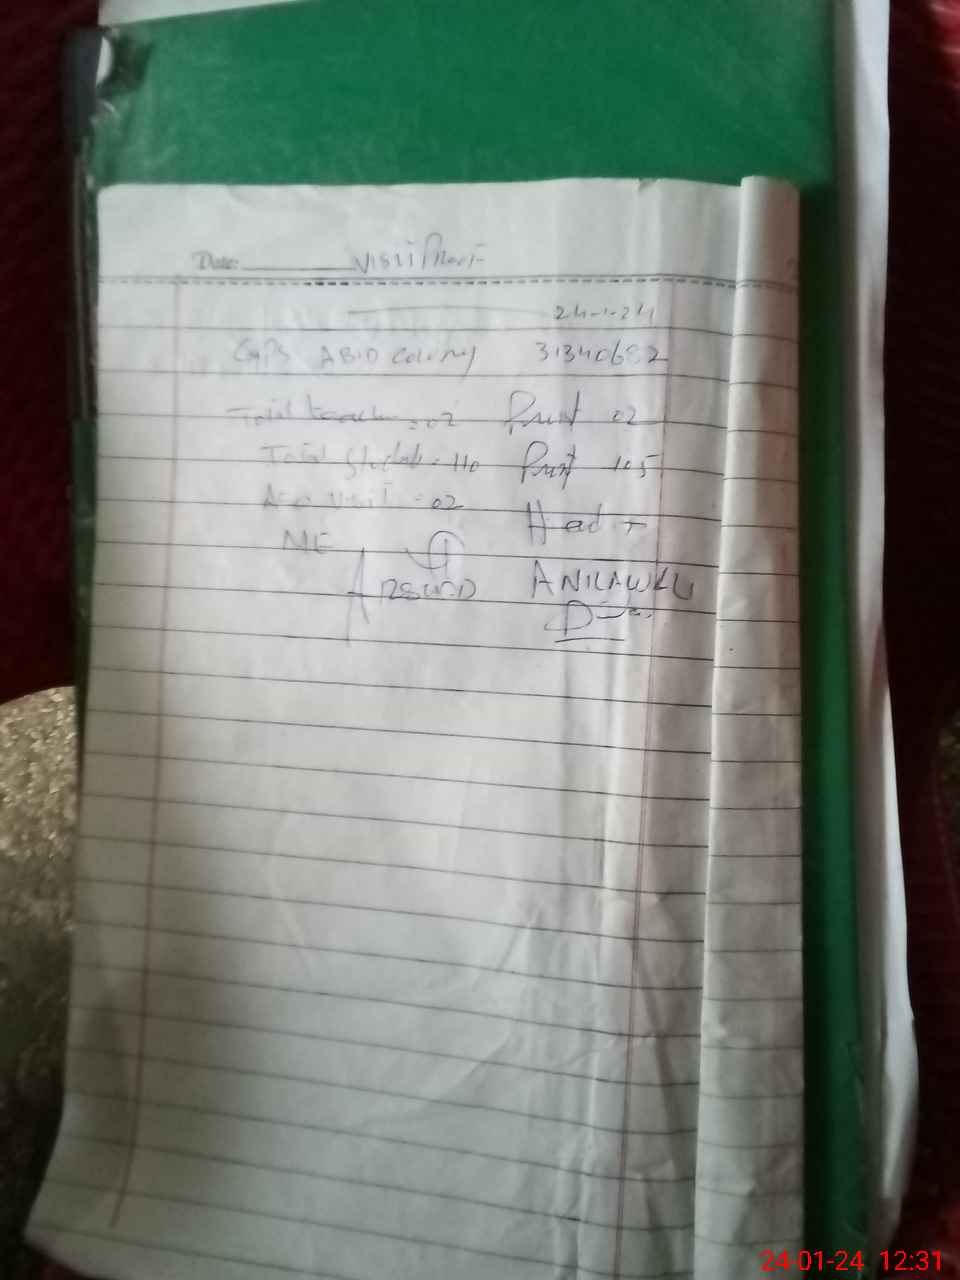 Date: VISIT Proof
24-1-24
GGPS ABID Colony 313406
Total teach = 02 Prsnt 02
Total Student = 110 Prsnt 105
AEO visit = 02
Head T
ME
ARSHAD
24-01-24 12:31